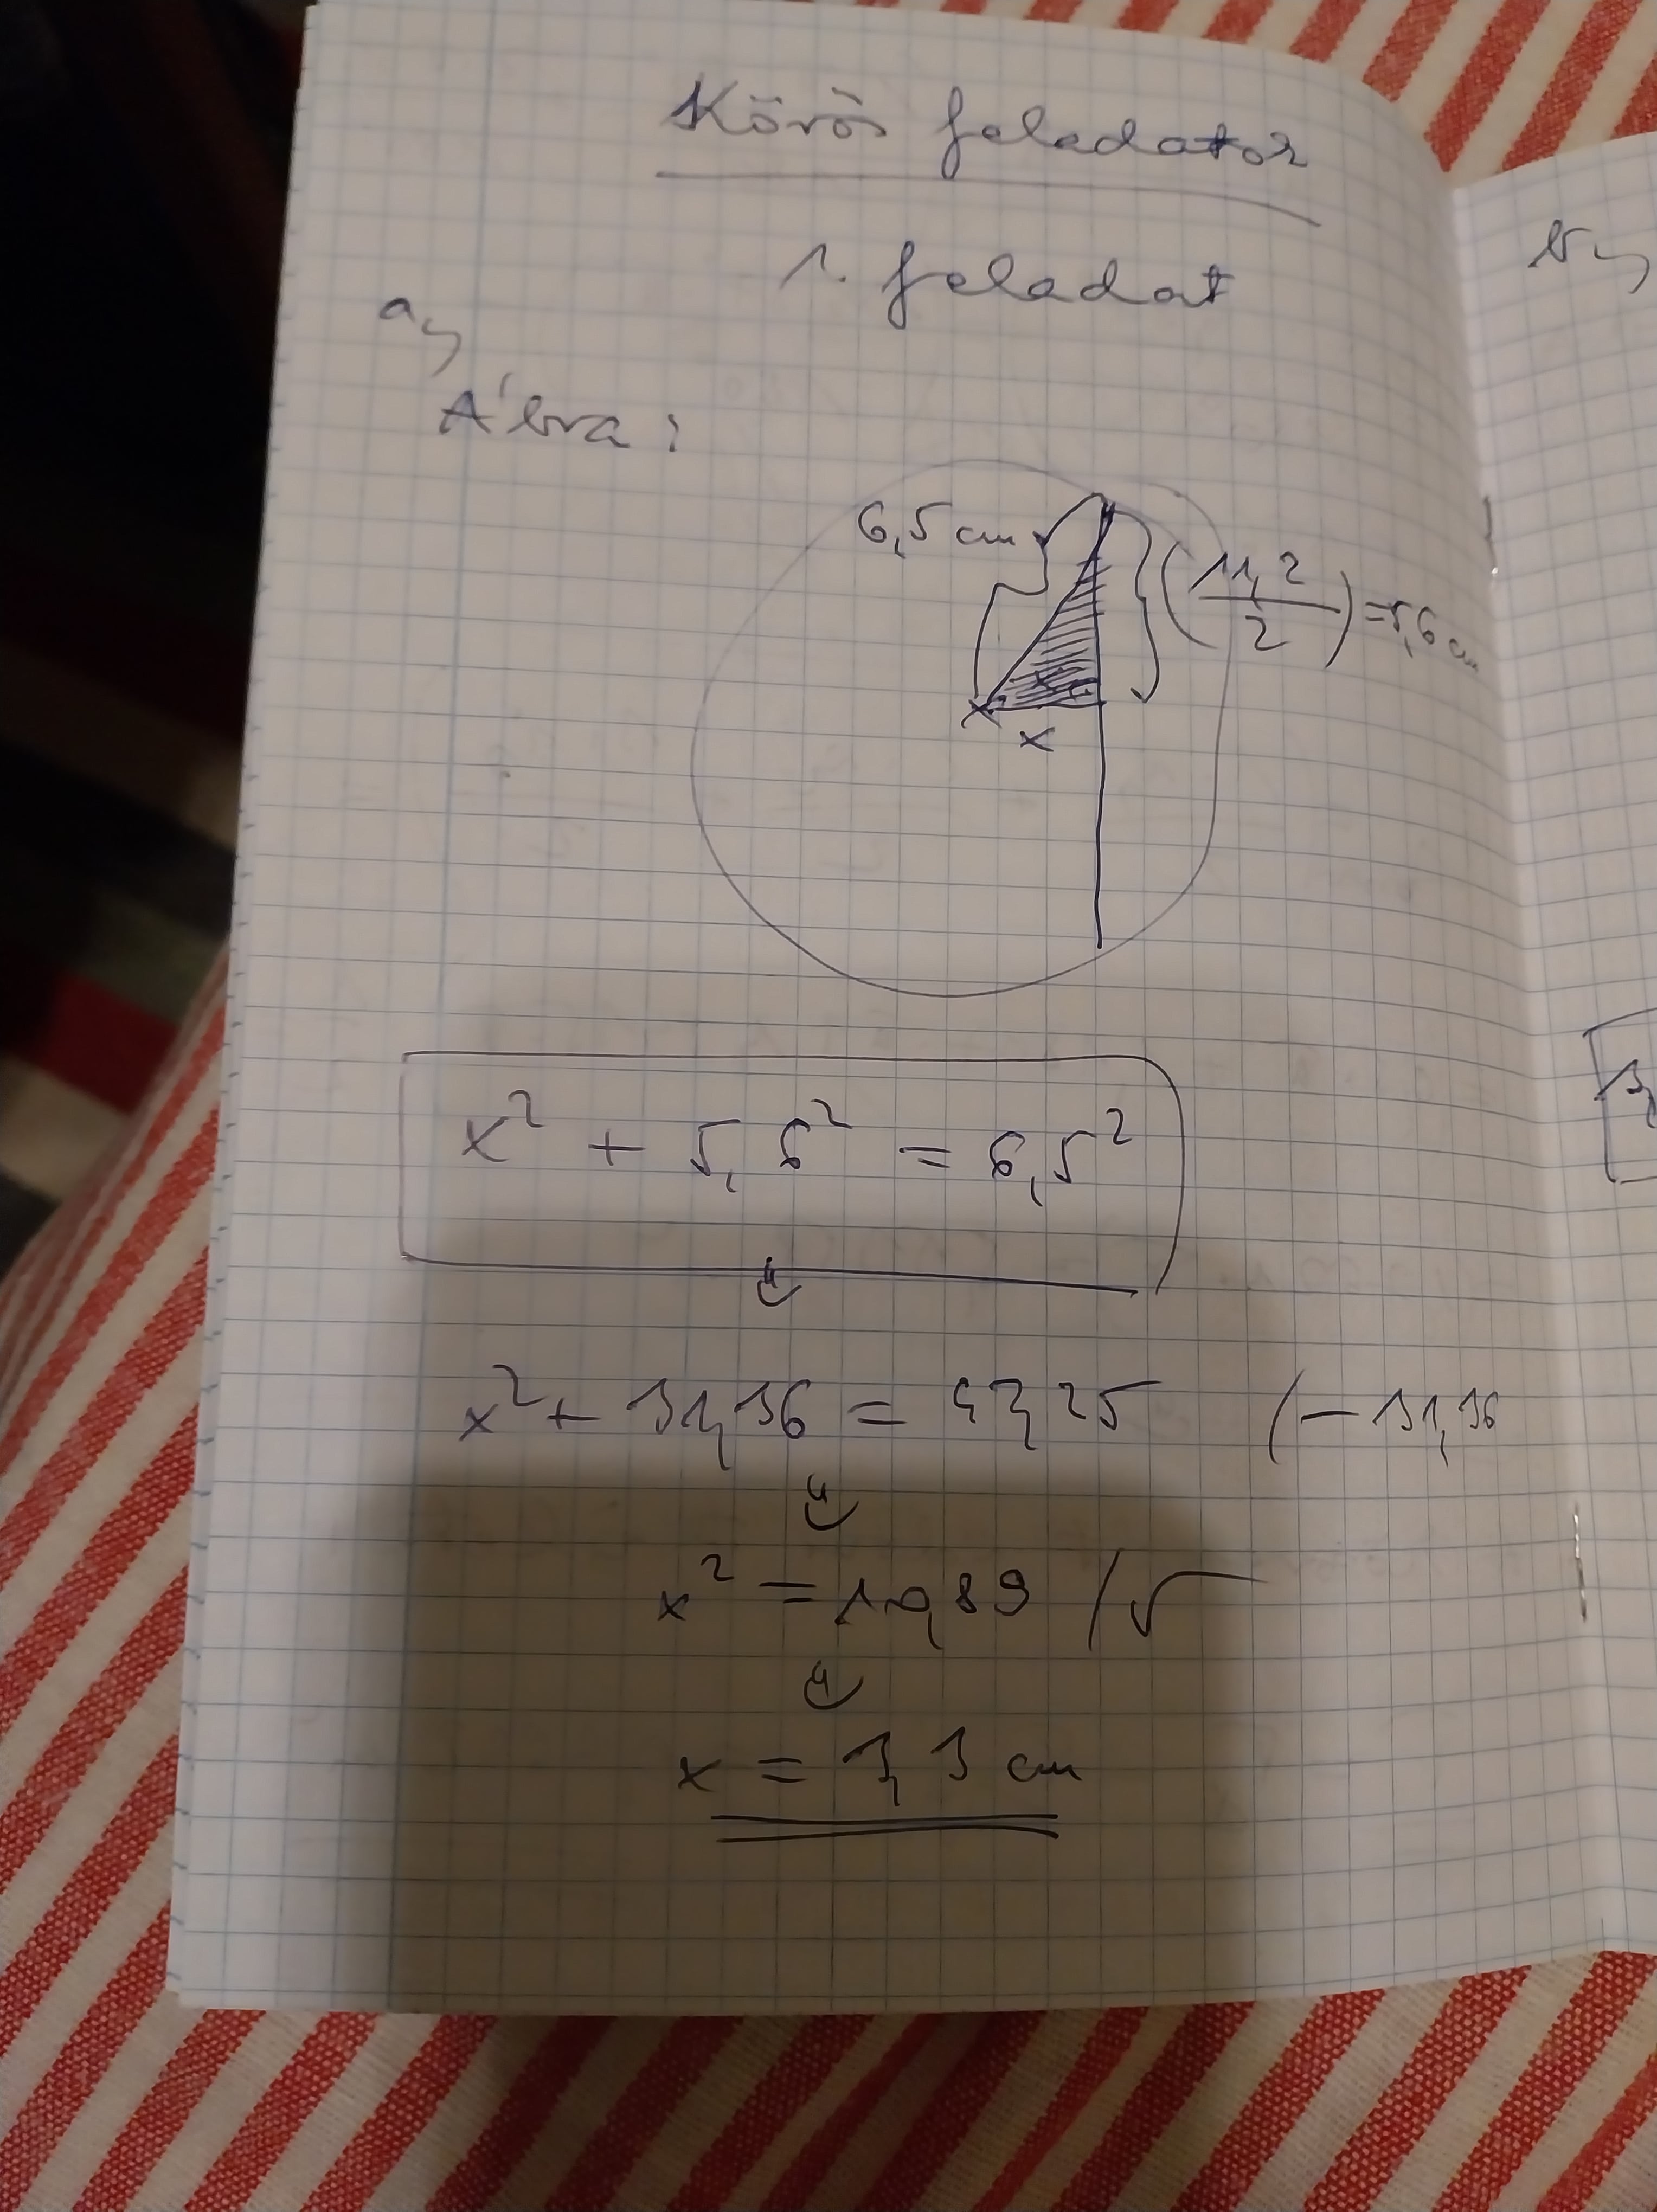 Körös feladatok
1. feladat
a,
Ábra:
6,5 cm
(11,2/2) = 5,6 cm
x
x² + 5,6² = 6,5²
x² + 31,36 = 42,25 /- 31,36
x² = 10,89 /√
x = 3,3 cm
b,